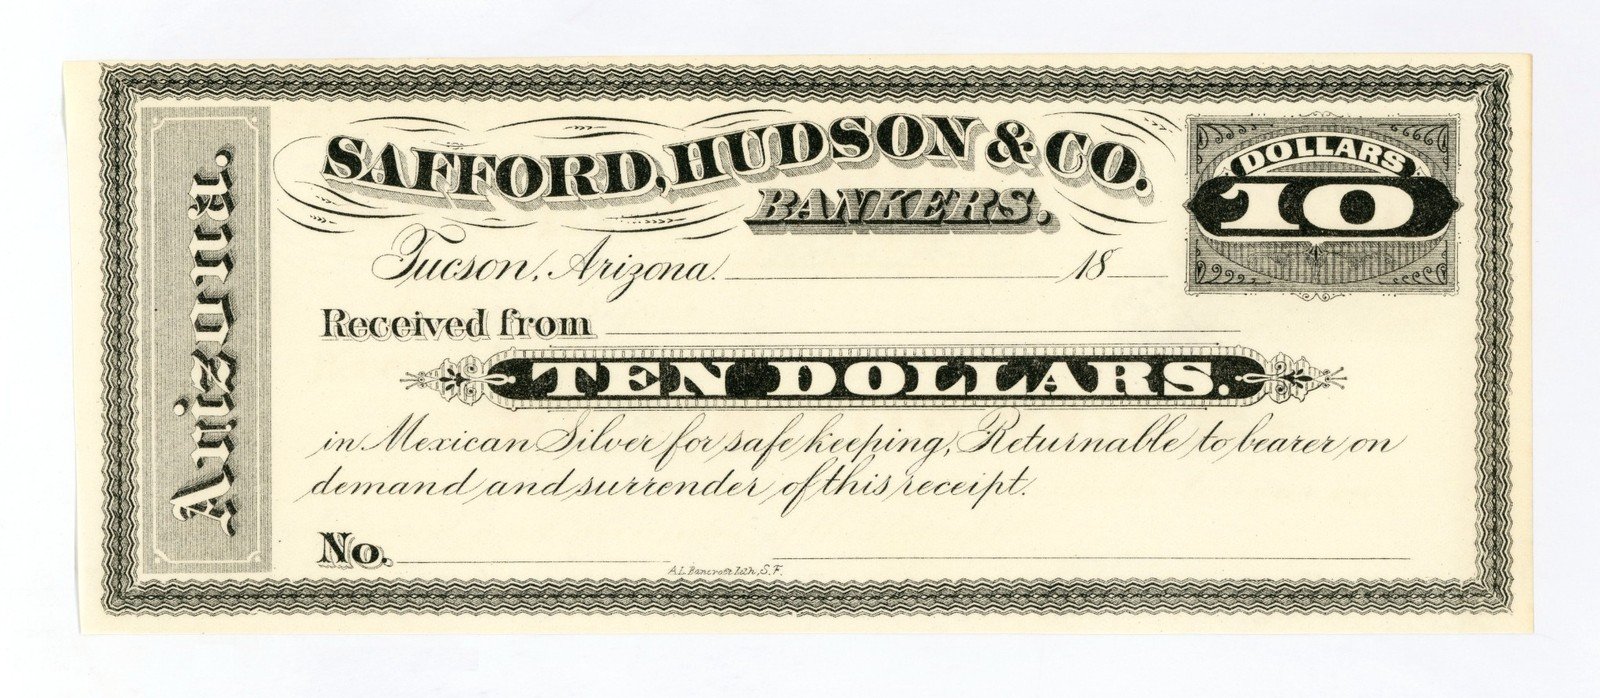 Arizona.
SAFFORD, HUDSON & CO.
BANKERS.
DOLLARS
10
Tucson, Arizona. 18
Received from
TEN DOLLARS.
in Mexican Silver for safe keeping, Returnable to bearer on
demand and surrender of this receipt.
No.
A.L. Bancroft Lith, S.F.